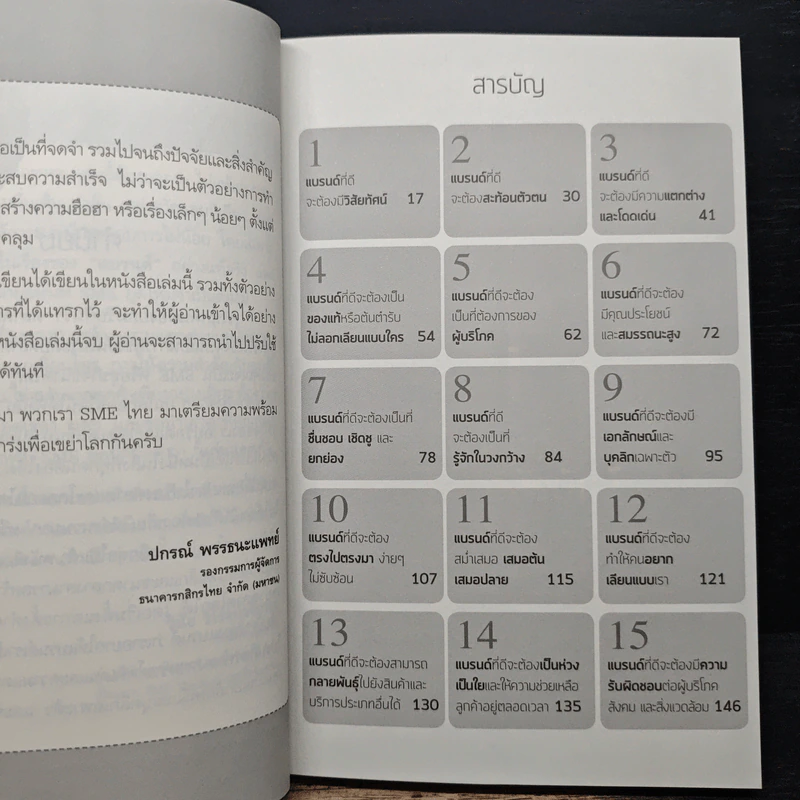 อเป็นที่จดจำ รวมไปจนถึงปัจจัยและสิ่งสำคัญ
ะสบความสำเร็จ ไม่ว่าจะเป็นตัวอย่างการทำ
สร้างความฮือฮา หรือเรื่องเล็กๆ น้อยๆ ตั้งแต่
คลุม
เขียนได้เขียนในหนังสือเล่มนี้ รวมทั้งตัวอย่าง
ารที่ได้แทรกไว้ จะทำให้ผู้อ่านเข้าใจได้อย่าง
หนังสือเล่มนี้จบ ผู้อ่านจะสามารถนำไปปรับใช้
ด้ทันที
มา พวกเรา SME ไทย มาเตรียมความพร้อม
กร่งเพื่อเขย่าโลกกันครับ
ปกรณ์ พรรธนะแพทย์
รองกรรมการผู้จัดการ
ธนาคารกสิกรไทย จำกัด (มหาชน)
สารบัญ
1
แบรนด์ที่ดี
จะต้องมีวิสัยทัศน์ 17
2
แบรนด์ที่ดี
จะต้องสะท้อนตัวตน 30
3
แบรนด์ที่ดี
จะต้องมีความแตกต่าง
และโดดเด่น 41
4
แบรนด์ที่ดีจะต้องเป็น
ของแท้หรือต้นตำรับ
ไม่ลอกเลียนแบบใคร 54
5
แบรนด์ที่ดีจะต้อง
เป็นที่ต้องการของ
ผู้บริโภค 62
6
แบรนด์ที่ดีจะต้อง
มีคุณประโยชน์
และสมรรถนะสูง 72
7
แบรนด์ที่ดีจะต้องเป็นที่
ชื่นชอบ เชิดชู และ
ยกย่อง 78
8
แบรนด์ที่ดี
จะต้องเป็นที่
รู้จักในวงกว้าง 84
9
แบรนด์ที่ดีจะต้องมี
เอกลักษณ์และ
บุคลิกเฉพาะตัว 95
10
แบรนด์ที่ดีจะต้อง
ตรงไปตรงมา ง่ายๆ
ไม่ซับซ้อน 107
11
แบรนด์ที่ดีจะต้อง
สม่ำเสมอ เสมอต้น
เสมอปลาย 115
12
แบรนด์ที่ดีจะต้อง
ทำให้คนอยาก
เลียนแบบเรา 121
13
แบรนด์ที่ดีจะต้องสามารถ
กลายพันธุ์ไปยังสินค้าและ
บริการประเภทอื่นได้ 130
14
แบรนด์ที่ดีจะต้องเป็นห่วง
เป็นใยและให้ความช่วยเหลือ
ลูกค้าอยู่ตลอดเวลา 135
15
แบรนด์ที่ดีจะต้องมีความ
รับผิดชอบต่อผู้บริโภค
สังคม และสิ่งแวดล้อม 146